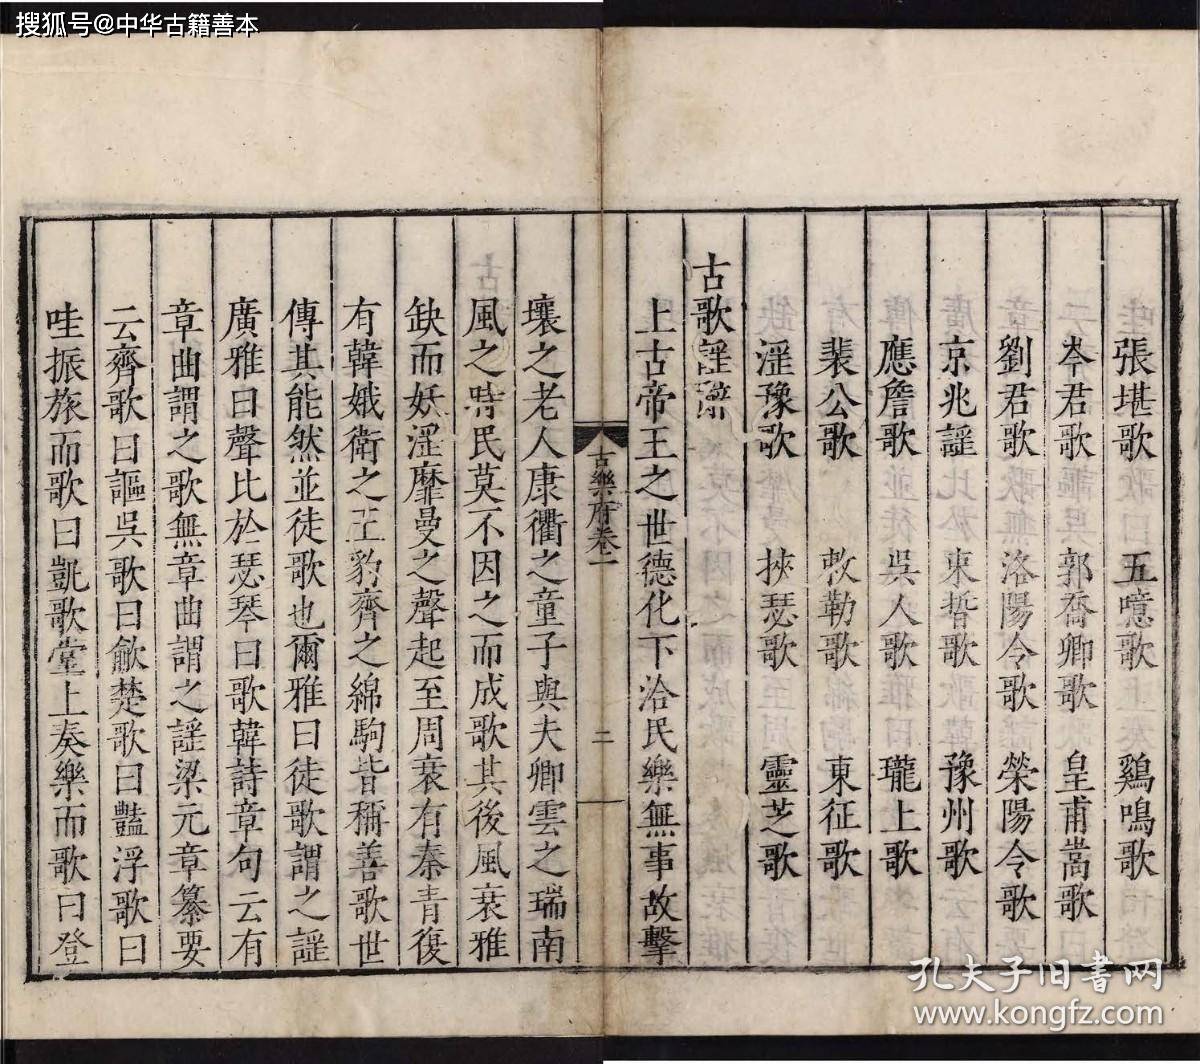 搜狐号@中华古籍善本
張堪歌 五噫歌 鷄鳴歌
岑君歌 郭喬卿歌 皇甫嵩歌
劉君歌 洛陽令歌 滎陽令歌
京兆謡 東晳歌 豫州歌
應詹歌 吳人歌 隴上歌
裴公歌 敕勒歌 東征歌
淫豫歌 挾瑟歌 靈芝歌
古歌謡辭
上古帝王之世德化下洽民樂無事故擊
古樂府卷一
二
壤之老人康衢之童子與夫卿雲之瑞南
風之時民莫不因之而成歌其後風衰雅
缺而妖淫靡曼之聲起至周衰有秦青復
有韓娥衛之王豹齊之綿駒皆稱善歌世
傳其能然並徒歌也爾雅曰徒歌謂之謡
廣雅曰聲比於瑟琴曰歌韓詩章句云有
章曲謂之歌無章曲謂之謡梁元章纂要
云齊歌曰謳吳歌曰歈楚歌曰豔浮歌曰
哇振旅而歌曰凱歌堂上奏樂而歌曰登
孔夫子旧书网
www.kongfz.com